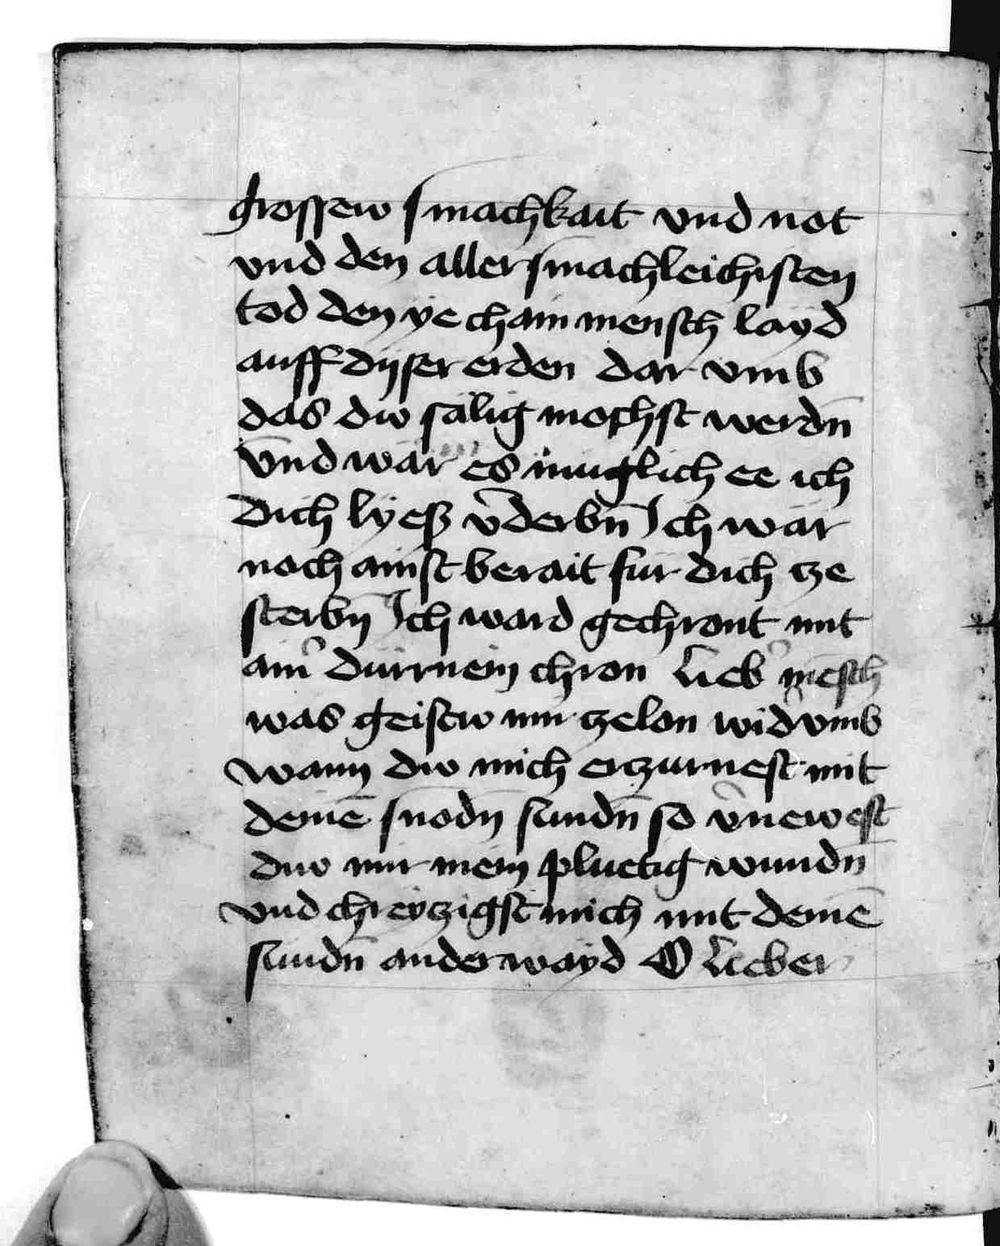 grossew smachkait vnd not
vnd den aller smachleichisten
tod den ye chain mensch layd
auff dyser erden dar vmb
das dw sälig mochst werdn̄
Vnd wär es muglich ee ich
dich lyeß v̄derbn̄ Ich wär
noch ainst berait fur dich cze
sterbn̄ Ich ward gechront mit
ain̄ dürnein chron Lieb̄ mēsch
was geistw mir czelon wid̄ vmb
wann dw mich erczurnest mit
deinē snodn̄ sundn̄ so v̄newest
duw mir mein pluetig wundn̄
vnd chreyczigst mich mit deinē
sundn̄ anderwayd O Lieber